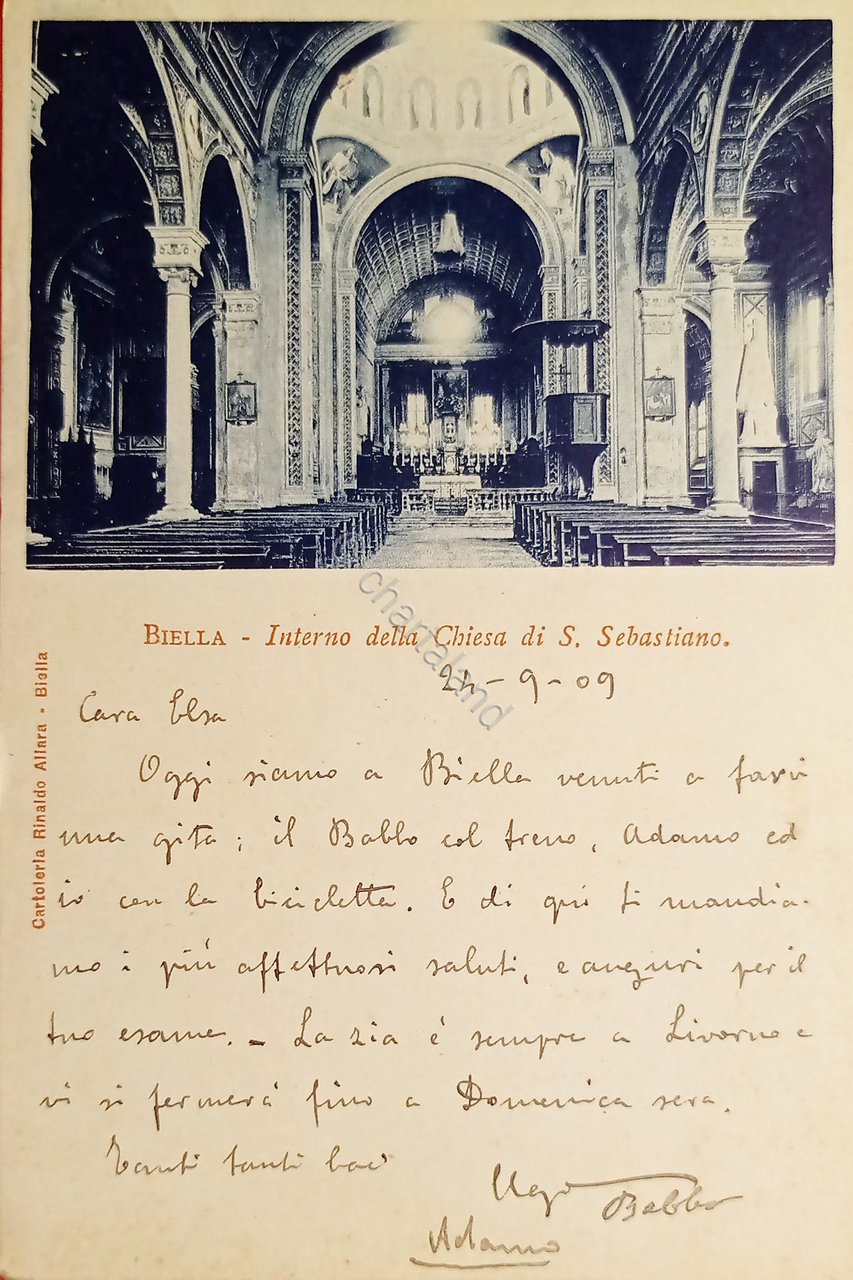 BIELLA - Interno della Chiesa di S. Sebastiano.
24-9-09
Cara Elsa
Oggi siamo a Biella venuti a farvi
una gita; il Babbo col treno, Adamo ed
io con la bicicletta. E di qui ti mandia-
mo i più affettuosi saluti, e auguri per il
tuo esame. - La zia è sempre a Livorno e
vi si fermerà fino a Domenica sera.
Tanti tanti baci
Ugo
Babbo
Adamo
Cartoleria Rinaldo Allara - Biella
chartaland